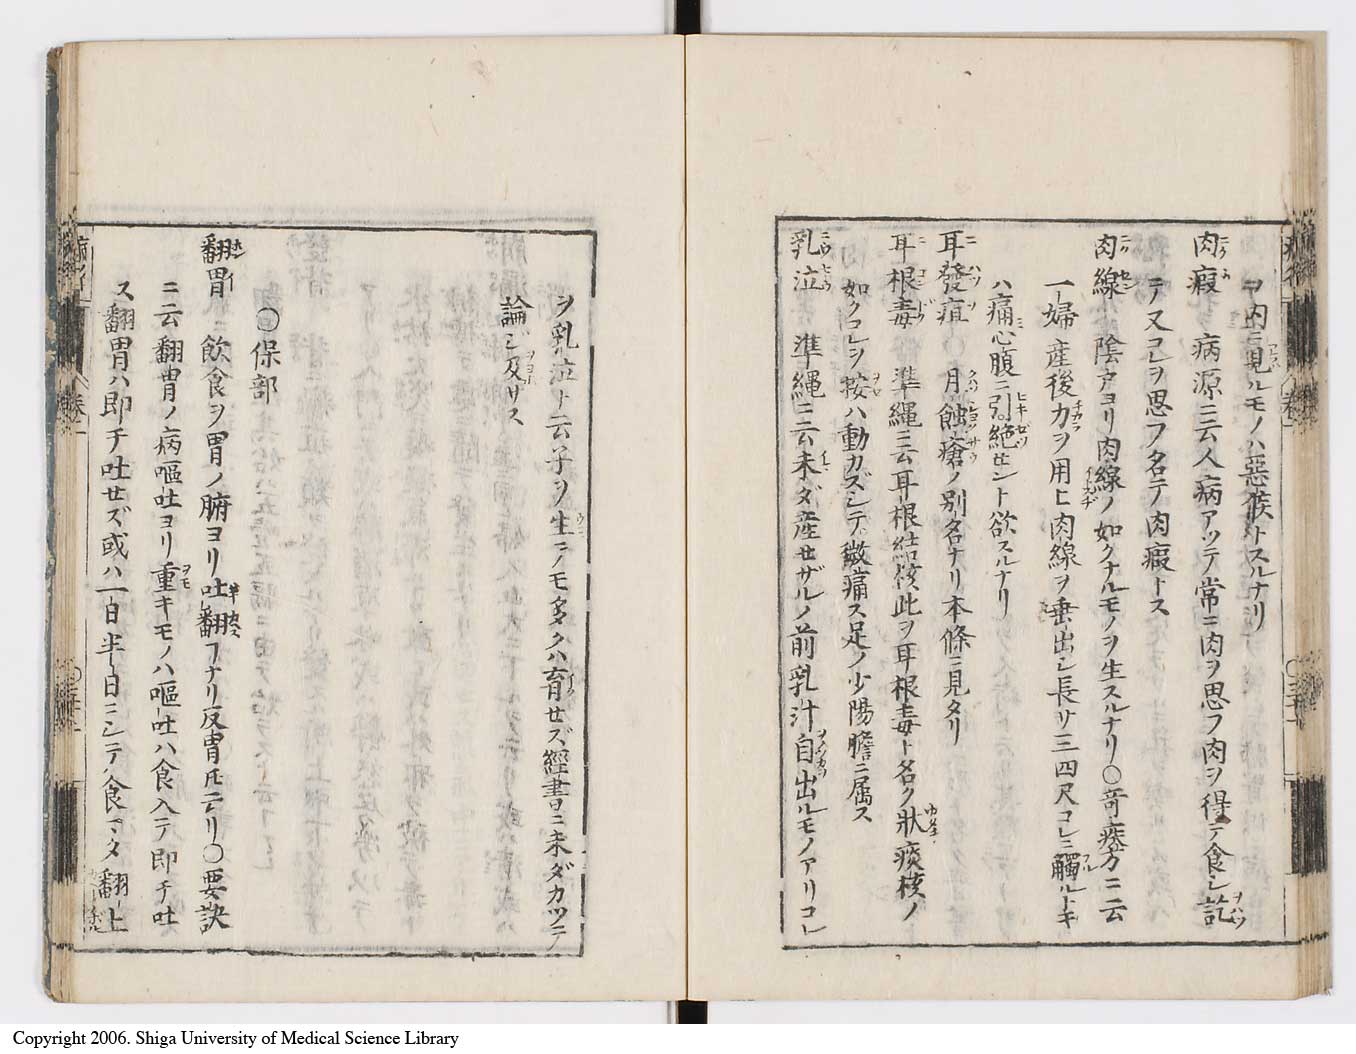 ヲ内ニ見ルモノハ惡候トスルナリ
肉瘕 病源ニ云人病アツテ常ニ肉ヲ思フ肉ヲ得テ食シ訖
テ又コレヲ思フ名テ肉瘕トス
肉線 陰戸ヨリ肉線ノ如クナルモノヲ生スルナリ〇竒方ニ云
一婦産後力ヲ用ヒ肉線ヲ垂出シ長サ三四尺コレニ觸ルトキ
ハ痛心腹ニ引絶セント欲スルナリ
耳發疽〇月蝕瘡ノ別名ナリ本條ニ見タリ
耳根毒 準繩ニ云耳根結核此ヲ耳根毒ト名ク狀痰核ノ
如クコレヲ按ハ動カズシテ微痛ス足ノ少陽膽ニ属ス
乳泣 準繩ニ云未ダ産セザルノ前乳汁自出ルモノアリコレ
ヲ乳泣ト云子ヲ生テモ多クハ育セズ經書ニ未ダカツテ
論ジ及サス
〇保部
翻胃 飲食ヲ胃ノ腑ヨリ吐翻フナリ反胃𪜈云リ〇要訣
ニ云翻胃ノ病嘔吐ヨリ重キモノハ嘔吐ハ食入テ即チ吐
ス翻胃ハ即チ吐セズ或ハ一日半日ニシテ食マタ翻上
Copyright 2006. Shiga University of Medical Science Library